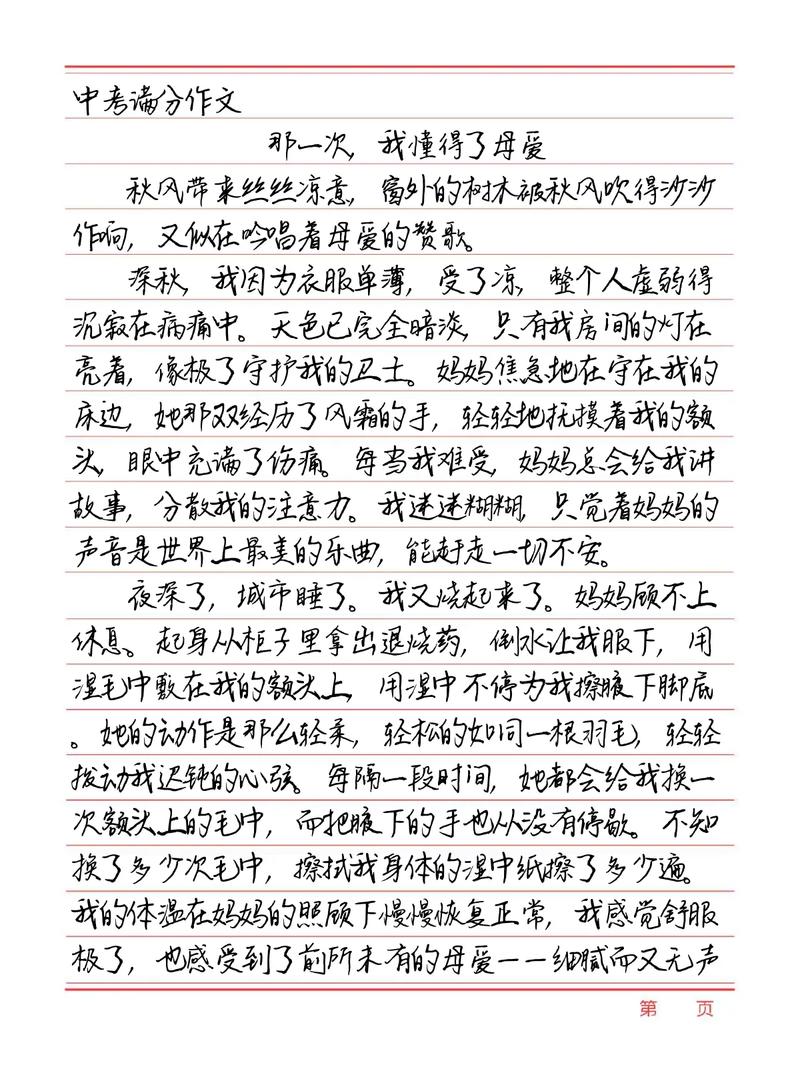 中考满分作文
那一次，我懂得了母爱
秋风带来丝丝凉意，窗外的树木被秋风吹得沙沙
作响，又似在吟唱着母爱的赞歌。
深秋，我因为衣服单薄，受了凉，整个人虚弱得
沉寂在病痛中。天色已完全暗淡，只有我房间的灯在
亮着，像极了守护我的卫士。妈妈焦急地在守在我的
床边，她那双经历了风霜的手，轻轻地抚摸着我的额
头，眼中充满了伤痛。每当我难受，妈妈总会给我讲
故事，分散我的注意力。我迷迷糊糊，只觉着妈妈的
声音是世界上最美的乐曲，能赶走一切不安。
夜深了，城市睡了。我又烧起来了。妈妈顾不上
休息。起身从柜子里拿出退烧药，倒水让我服下，用
湿毛巾敷在我的额头上，用湿巾不停为我擦腋下脚底
。她的动作是那么轻柔，轻松的如同一根羽毛，轻轻
拨动我迟钝的心弦。每隔一段时间，她都会给我换一
次额头上的毛巾，而把腋下的手也从没有停歇。不知
换了多少次毛巾，擦拭我身体的湿巾纸擦了多少遍。
我的体温在妈妈的照顾下慢慢恢复正常，我感觉舒服
极了，也感受到了前所未有的母爱——细腻而又无声
第 页